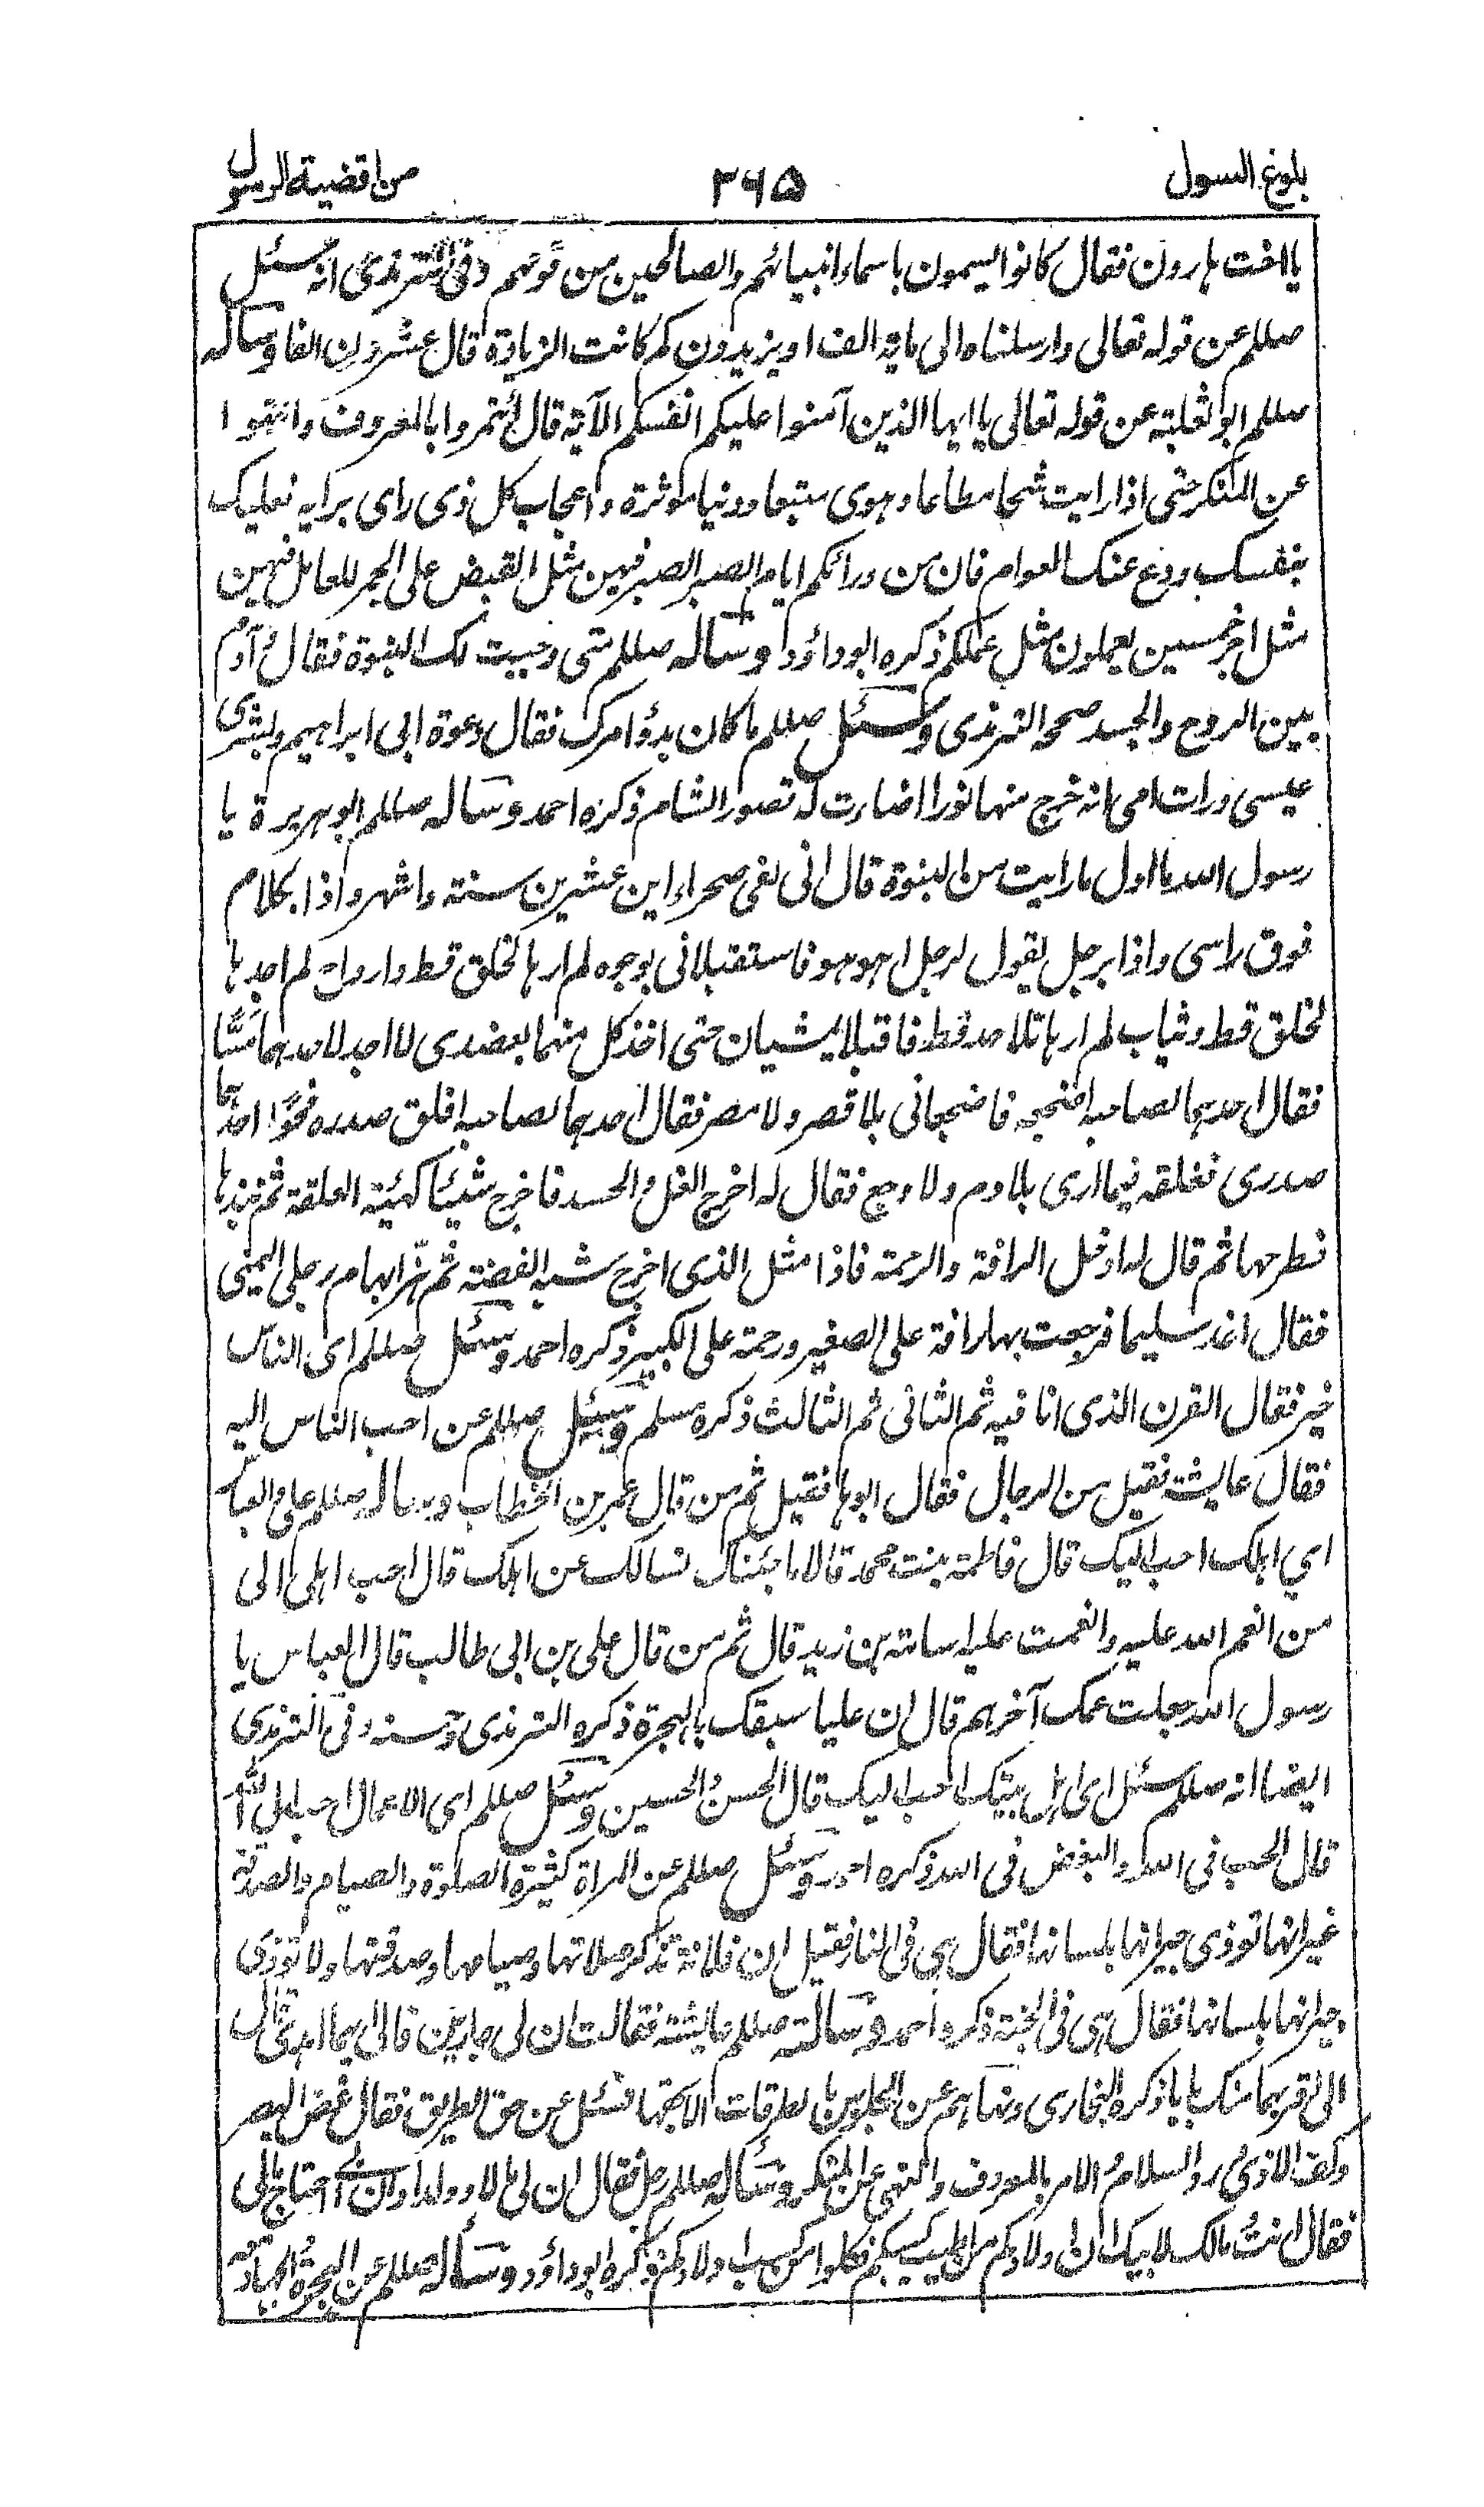 بلوغ السول
٣٦٥
من اقضية الرسول
يا اخت هارون فقال كانوا يسمون باسماء انبيائهم والصالحين من قومهم وفى الترمذى انه سئل
صللم عن قوله تعالى وارسلناه الى مائة الف او يزيدون كم كانت الزيادة قال عشرون الفا وسأله
صللم ابو ثعلبة عن قوله تعالى يا ايها الذين آمنوا عليكم انفسكم الآية قال ائتمروا بالمعروف وانتهوا
عن المنكر حتى اذا رايت شحا مطاعا وهوى متبعا ودنيا موثرة واعجاب كل ذى راى برايه فعليك
بنفسك ودع عنك العوام فان من ورائكم ايام الصبر الصبر فيهن مثل القبض على الجمر للعامل فيهن
مثل اجر خمسين يعملون مثل عملكم ذكره ابو داؤد وسأله صللم متى وجبت لك النبوة فقال وآدم
بين الروح والجسد صححه الترمذى وسئل صللم ما كان بدؤ امرك فقال دعوة ابى ابراهيم وبشرى
عيسى ورات امى انه خرج منها نورا اضاءت له قصور الشام ذكره احمد وسأله صللم ابو هريرة يا
رسول الله ما اول ما رايت من النبوة قال انى لفى صحراء ابن عشرين سنة واشهر واذا بكلام
فوق راسى واذا برجل يقول لرجل اهو هو فاستقبلانى بوجوه لم ارها لخلق قط وارواح لم اجدها
لخلق قط وثياب لم ارها على احد قط فاقبلا يمشيان حتى اخذ كل منهما بعضدى لا اجد لاحدهما مسًّا
فقال احدهما لصاحبه اضجعه فاضجعانى بلا قصر ولا هصر فقال احدهما لصاحبه افلق صدره فحوا احدهما
صدرى ففلقه فيما ارى بلا دم ولا وجع فقال له اخرج الغل والحسد فاخرج شيئا كهيئة العلقة ثم نبذها
فطرحها ثم قال له ادخل الرافة والرحمة فاذا مثل الذى اخرج شبه الفضة ثم هزّ ابهام رجلى اليمنى
فقال اغد سليما فرجعت بها رافة على الصغير ورحمة على الكبير ذكره احمد وسئل صللم اى الناس
خير فقال القرن الذى انا فيه ثم الثانى ثم الثالث ذكره مسلم وسئل صللم عن احب الناس اليه
فقال عايشة فقيل من الرجال فقال ابوها فقيل ثم من قال عمر بن الخطاب وسأله صللم على والعباس
اى اهلك احب اليك قال فاطمة بنت محمد قالا ما جئناك نسالك عن اهلك قال احب اهلى الى
من انعم الله عليه وانعمت عليه اسامة بن زيد قال ثم من قال على بن ابى طالب قال العباس يا
رسول الله جعلت عمك آخرهم قال ان عليا سبقك بالهجرة ذكره الترمذى وحسنه وفى الترمذى
ايضا انه صللم سئل اى اهل بيتك احب اليك قال الحسن والحسين وسئل صللم اى الاعمال احب الى الله
قال الحب فى الله والبغض فى الله ذكره احمد وسئل صللم عن المراة كثيرة الصلوة والصيام والصدقة
غير انها توذى جيرانها بلسانها فقال هى فى النار فقيل ان فلانة تذكر صلاتها وصيامها وصدقتها ولا توذى
جيرانها بلسانها فقال هى فى الجنة ذكره احمد وسألته صللم عايشة فقالت ان لى جارين فالى ايهما اهدى قال
الى اقربهما منك بابا ذكره البخارى ونهاهم عن الجلوس بالطرقات الا بحقها فسئل عن حق الطريق فقال غض البصر
وكف الاذى ورد السلام والامر بالمعروف والنهى عن المنكر وسأله صللم رجل فقال ان لى مالا وولدا وان ابى احتاج مالى
فقال انت ومالك لابيك ان اولادكم من اطيب كسبكم فكلوا من كسب اولادكم ذكره ابو داؤد وسأله صللم عن الهجرة والجهاد معه